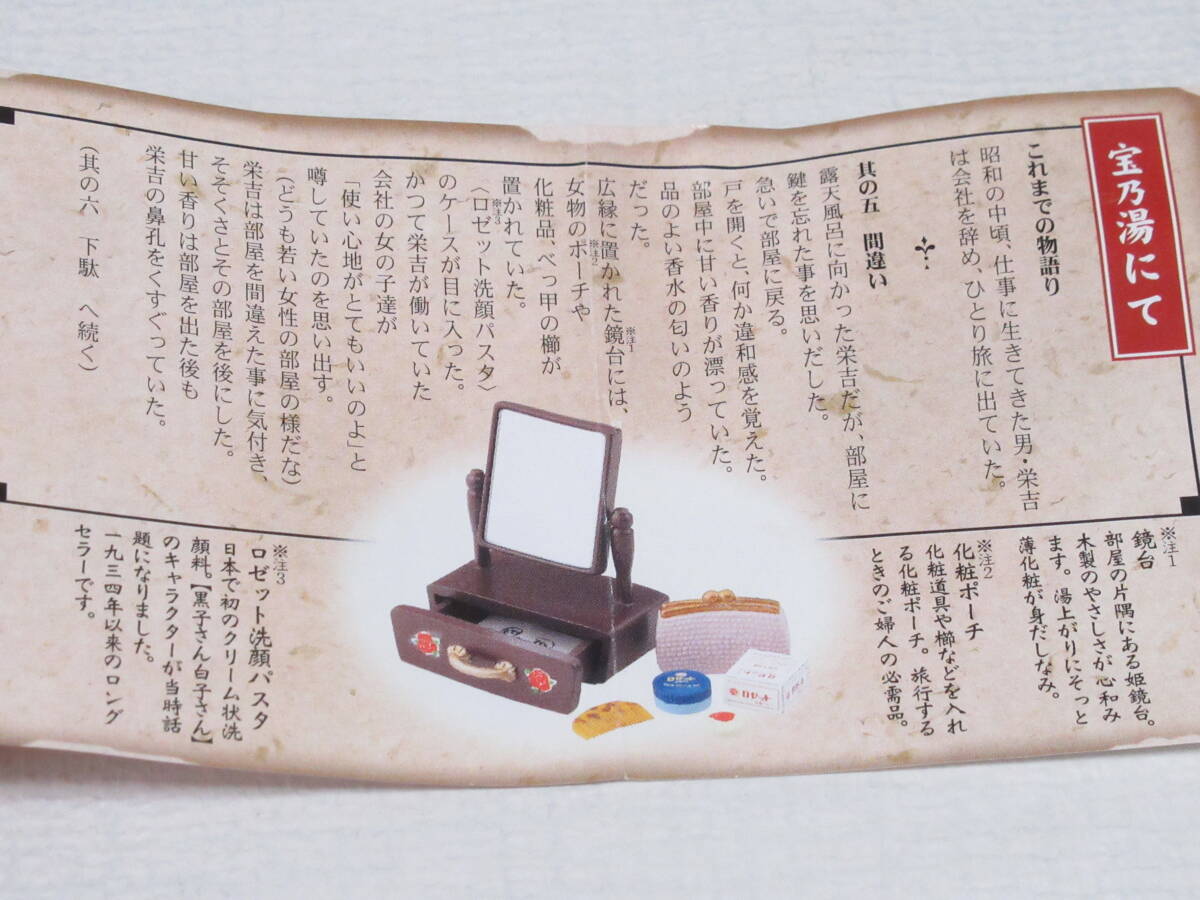 宝乃湯にて
これまでの物語り
昭和の中頃、仕事に生きてきた男・栄吉
は会社を辞め、ひとり旅に出ていた。
其の五　間違い
露天風呂に向かった栄吉だが、部屋に
鍵を忘れた事を思いだした。
急いで部屋に戻る。
戸を開くと、何か違和感を覚えた。
部屋中に甘い香りが漂っていた。
品のよい香水の匂いのよう
だった。
広縁に置かれた鏡台には、※注1
女物のポーチや※注2
化粧品、べっ甲の櫛が
置かれていた。
〈ロゼット洗顔パスタ〉※注3
のケースが目に入った。
かつて栄吉が働いていた
会社の女の子達が
「使い心地がとてもいいのよ」と
噂していたのを思い出す。
（どうも若い女性の部屋の様だな）
栄吉は部屋を間違えた事に気付き、
そそくさとその部屋を後にした。
甘い香りは部屋を出た後も
栄吉の鼻孔をくすぐっていた。
（其の六　下駄　へ続く）
※注1
鏡台
部屋の片隅にある姫鏡台。
木製のやさしさが心和み
ます。湯上がりにそっと
薄化粧が身だしなみ。
※注2
化粧ポーチ
化粧道具や櫛などを入れ
る化粧ポーチ。旅行する
ときのご婦人の必需品。
※注3
ロゼット洗顔パスタ
日本で初のクリーム状洗
顔料。【黒子さん白子さん】
のキャラクターが当時話
題になりました。
一九三四年以来のロング
セラーです。